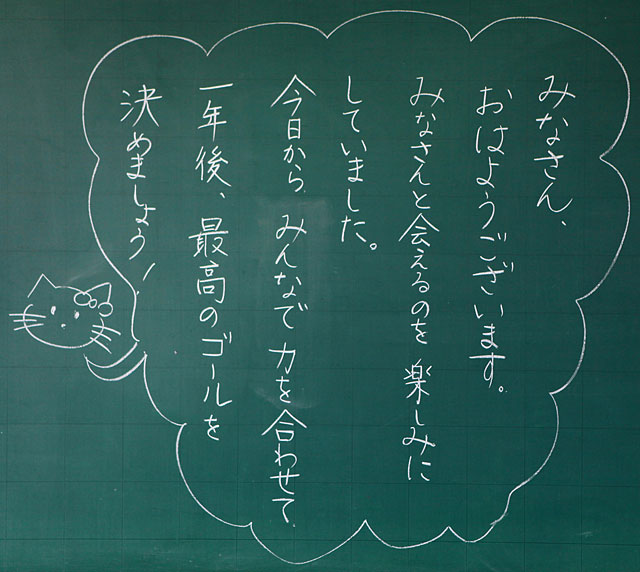 みなさん、
おはようございます。
みなさんと会えるのを楽しみに
していました。
今日から みんなで 力を合わせて
一年後、最高のゴールを
決めましょう!